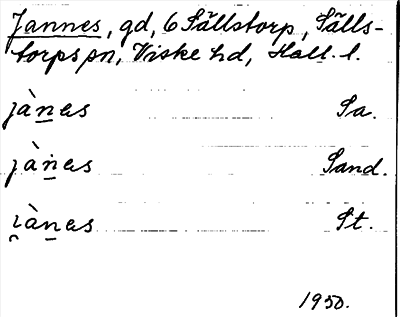 Jannes, gd, 6 Sällstorp, Sälls-
torps sn, Viske hd, Hall. l.
jàn̲as Sa.
jàn̲as Sand.
i̯àn̲as St.
1950.